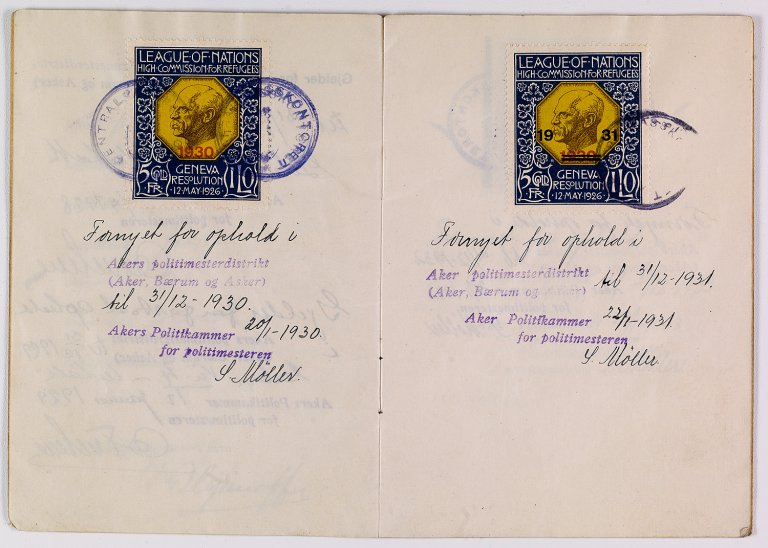 LEAGUE·OF·NATIONS
HIGH·COMMISSION·FOR·REFUGEES
1930
GENEVA
RESOLUTION
·12·MAY·1926·
5 GOLD FR
ILO
CENTRALPASSKONTORET
Fornyet for ophold i
Akers politimesterdistrikt
(Aker, Bærum og Asker)
til 31/12 - 1930.
Akers Politikammer 20/1-1930.
for politimesteren
S Möller.
LEAGUE·OF·NATIONS
HIGH·COMMISSION·FOR·REFUGEES
19 31
1930
GENEVA
RESOLUTION
·12·MAY·1926·
5 GOLD FR
ILO
Fornyet for ophold i
Aker politimesterdistrikt
(Aker, Bærum og Asker) til 31/12-1931.
Aker Politikammer 22/1-1931.
for politimesteren
S Möller